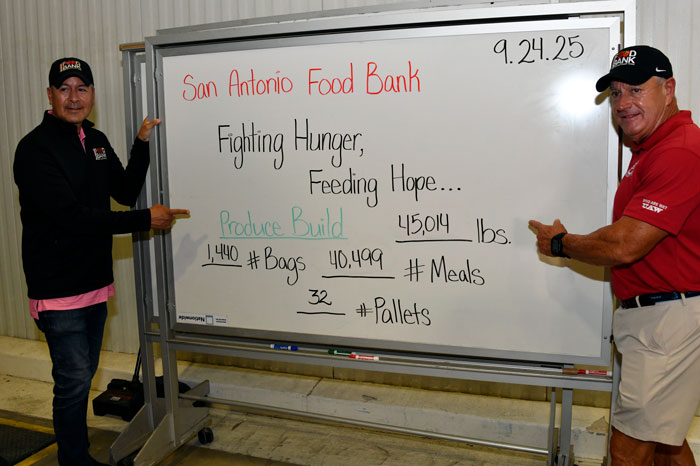 9.24.25
San Antonio Food Bank
Fighting Hunger,
Feeding Hope...
Produce Build 45,014 lbs.
1,440 #Bags 40,499 #Meals
32 #Pallets
Nationwide
FOOD BANK
FOOD BANK
WHO ARE WE?
UAW